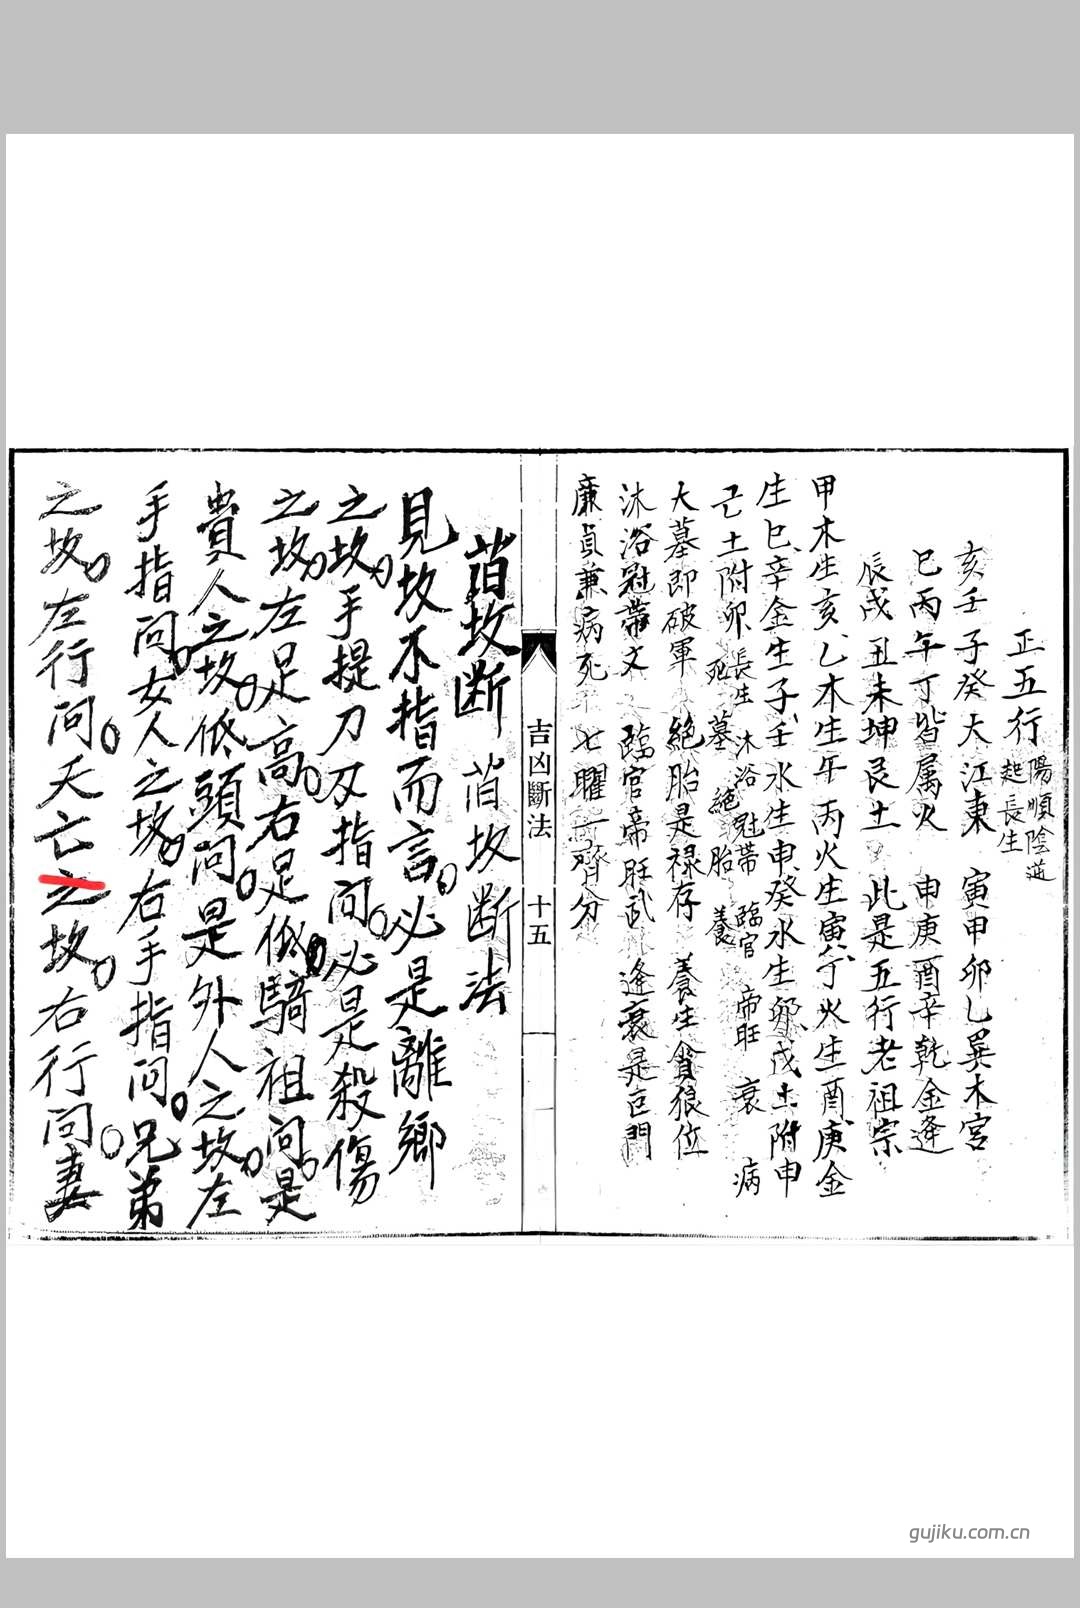 正五行 陽順陰逆起長生
亥壬子癸大江東 寅甲卯乙巽木宮
巳丙午丁皆属火 申庚酉辛乾金逢
辰戌丑未坤艮土 此是五行老祖宗
甲木生亥乙木生午丙火生寅丁火生酉庚金
生巳辛金生子壬水生申癸水生卯戊土附申
己土附卯 長生 沐浴 冠帶 臨官 帝旺 衰 病
死 墓 絕 胎 養
大墓即破軍 絕胎是禄存 養生貪狼位
沐浴冠帶文 臨官帝旺武 逢衰是巨門
廉貞兼病死 七曜一齊分
吉凶斷法 十五
坟断 坟断法
見坟不指而言必是離鄉
之坟手提刀刄指问必是殺傷
之坟左足高右足低騎祖问是
貴人之坟低頭问是外人之坟左
手指问女人之坟右手指问兄弟
之坟左行问夭亡之坟右行问妻
gujiku.com.cn